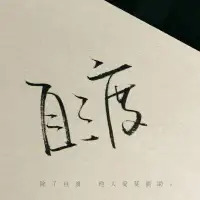 自渡
除了自渡 他人愛莫能助。